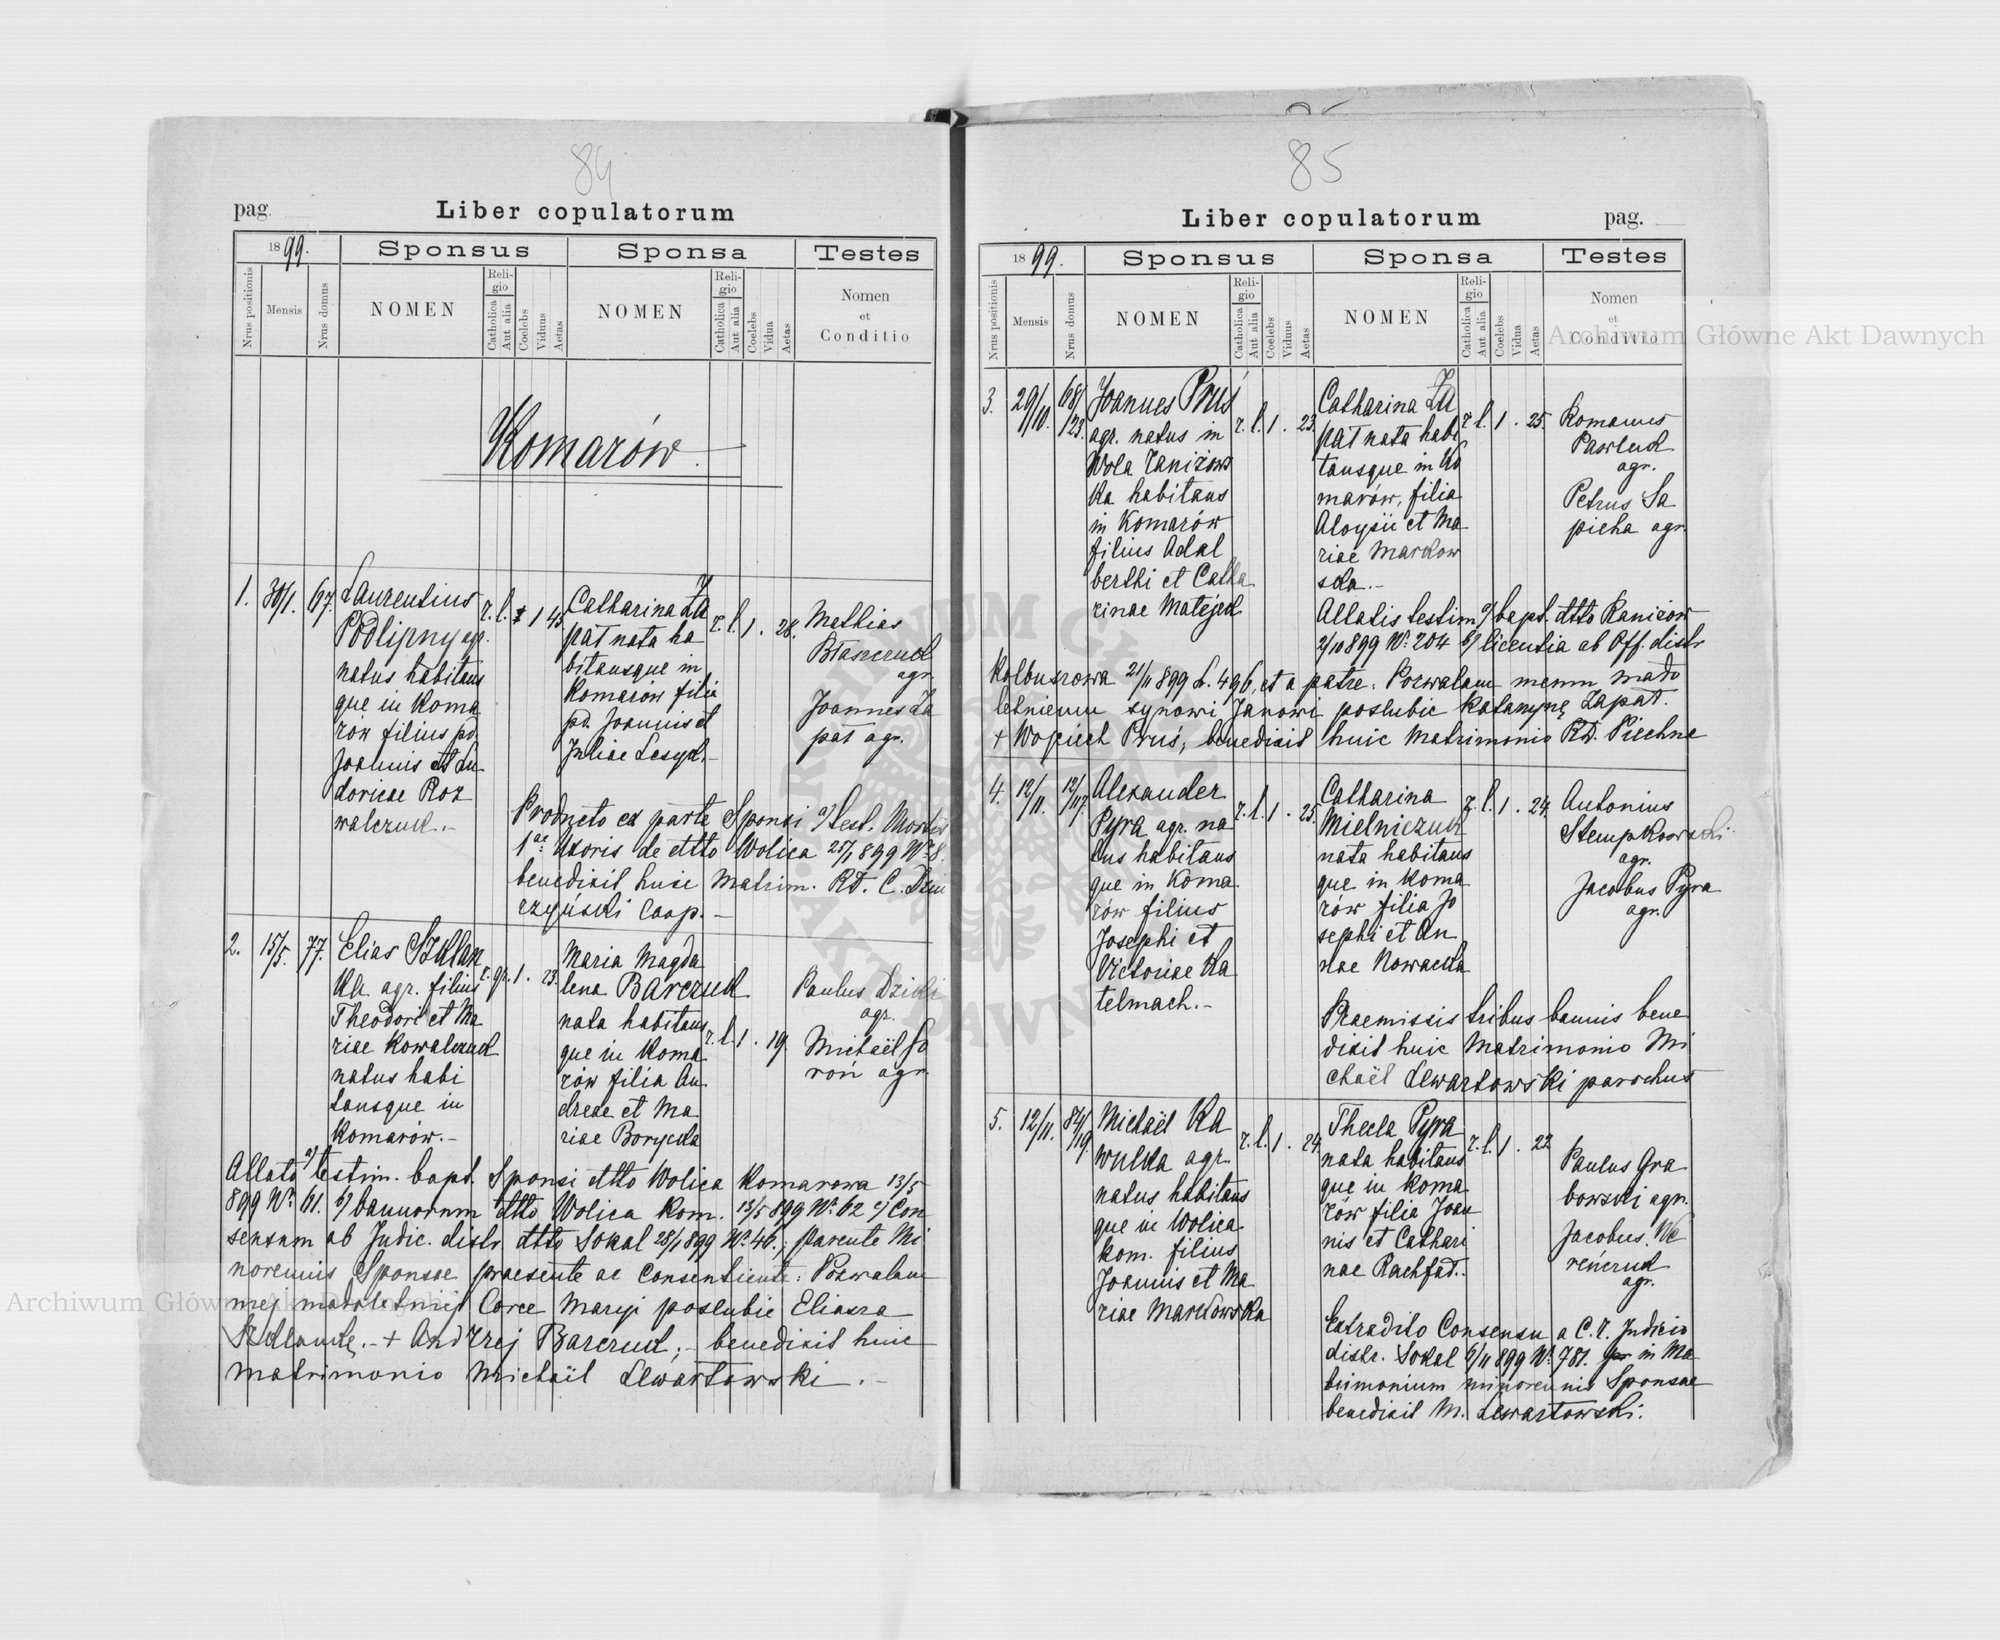 84
pag.
Liber copulatorum
1899.
Sponsus
Sponsa
Testes
Nrus positionis
Mensis
Nrus domus
NOMEN
Religio
Catholica
Aut alia
Coelebs
Viduus
Aetas
NOMEN
Religio
Catholica
Aut alia
Coelebs
Vidua
Aetas
Nomen
et
Conditio
Komarów.
1. 30/1. 67.
Laurentius
Podlipny agr.
natus habitans
que in Koma
rów filius pd.
Joannis et Lu
dovicae Roz
walczuk.-
r. l. 1 45
Catharina Ła
pat nata ha-
bitansque in
Komarów filia
pd. Joannis et
Juliae Lesyk.-
r. l. 1 . 28.
Mathias
Błaszczuk
agr.
Joannes Ła
pat agr.
Producto ex parte Sponsi a/ test. Mortis
1ae Uxoris de dtto Wolica 25/1 899 Nr 8.
benedixit huic Matrim. RD. C. Dziu
rzyński Coop.-
2. 15/5. 77.
Elias Szklan
ka agr. filius
Theodori et Ma
riae Kowalczuk
natus habi
tansque in
Komarów.-
r. gr. 1 . 23.
Maria Magda
lena Barczuk
nata habitans
que in Koma
rów filia An
dreae et Ma
riae Borycka
r. l. 1 . 19.
Paulus Dziki
agr.
Michaël Go
roń agr.
Allato a/ testim. bapt. Sponsi dtto Wolica Komarowa 13/5
899 Nr 61. b/ bannorum dtto Wolica Kom. 13/5 899 Nr 62 c/ Con
sensum ab Judic. distr. dtto Sokal 28/1 899 Nr 46.; parente Mi
norennis Sponsae praesente ac consentiente: Pozwalam
mej małoletniej Corce Maryi poslubic Eliasza
Szklankę.- + Andrzej Barczuk;- benedixit huic
matrimonio Michaël Lewartowski.-
85
Liber copulatorum
pag.
1899.
Sponsus
Sponsa
Testes
Nrus positionis
Mensis
Nrus domus
NOMEN
Religio
Catholica
Aut alia
Coelebs
Viduus
Aetas
NOMEN
Religio
Catholica
Aut alia
Coelebs
Vidua
Aetas
Nomen
et
Conditio
3. 29/10. 68/123.
Joannes Pruś
agr. natus in
Wola Raniżows
ka habitans
in Komarów
filius Adal
berthi et Catha
rinae Matejek
r. l. 1 . 23.
Catharina Ła
pat nata habi
tansque in Ko
marów, filia
Aloysii et Ma
riae Markow
ska.-
r. l. 1 . 25.
Romanus
Pawluk
agr.
Petrus Sa
pieha agr.
Allatis testim. a/ bapt. dtto Raniżow
2/10 899 Nr 204 b/ licentia ab Off. distr
Kolbuszowa 21/11 899 L. 496, et a patre: Pozwalam memu mało
letniemu synowi Janowi poslubic Katarzynę Łapat.
+ Wojciech Pruś; benedixit huic Matrimonio RD. Piechno
4. 12/11. 12/117.
Alexander
Pyra agr. na
tus habitans
que in Koma
rów filius
Josephi et
Victoriae Ka
telmach.-
r. l. 1 . 25.
Catharina
Mielniczuk
nata habitans
que in Koma
rów filia Jo
sephi et An
nae Nowacka
r. l. 1 . 24.
Antonius
Stempkowski
agr.
Jacobus Pyra
agr.
Praemissis tribus bannis bene
dixit huic Matrimonio Mi
chaël Lewartowski parochus
5. 12/11. 84/19.
Michaël Ka
wulka agr.
natus habitans
que in Wolica
kom. filius
Joannis et Ma
riae Markowska
r. l. 1 . 24.
Thecla Pyra
nata habitans
que in Koma
rów filia Joan
nis et Cathari
nae Rachfad..
r. l. 1 . 22
Paulus Gra
bowski agr.
Jacobus We
reńczuk
agr.
Extradito Consensu a C. r. Judicio
distr. Sokal 6/11 899 Nr 781. in Ma
trimonium minorennis Sponsae
benedixit M. Lewartowski.
Archiwum Główne Akt Dawnych
Archiwum Główne Akt Dawnych
ARCHIWUM GŁÓWNE AKT DAWNYCH